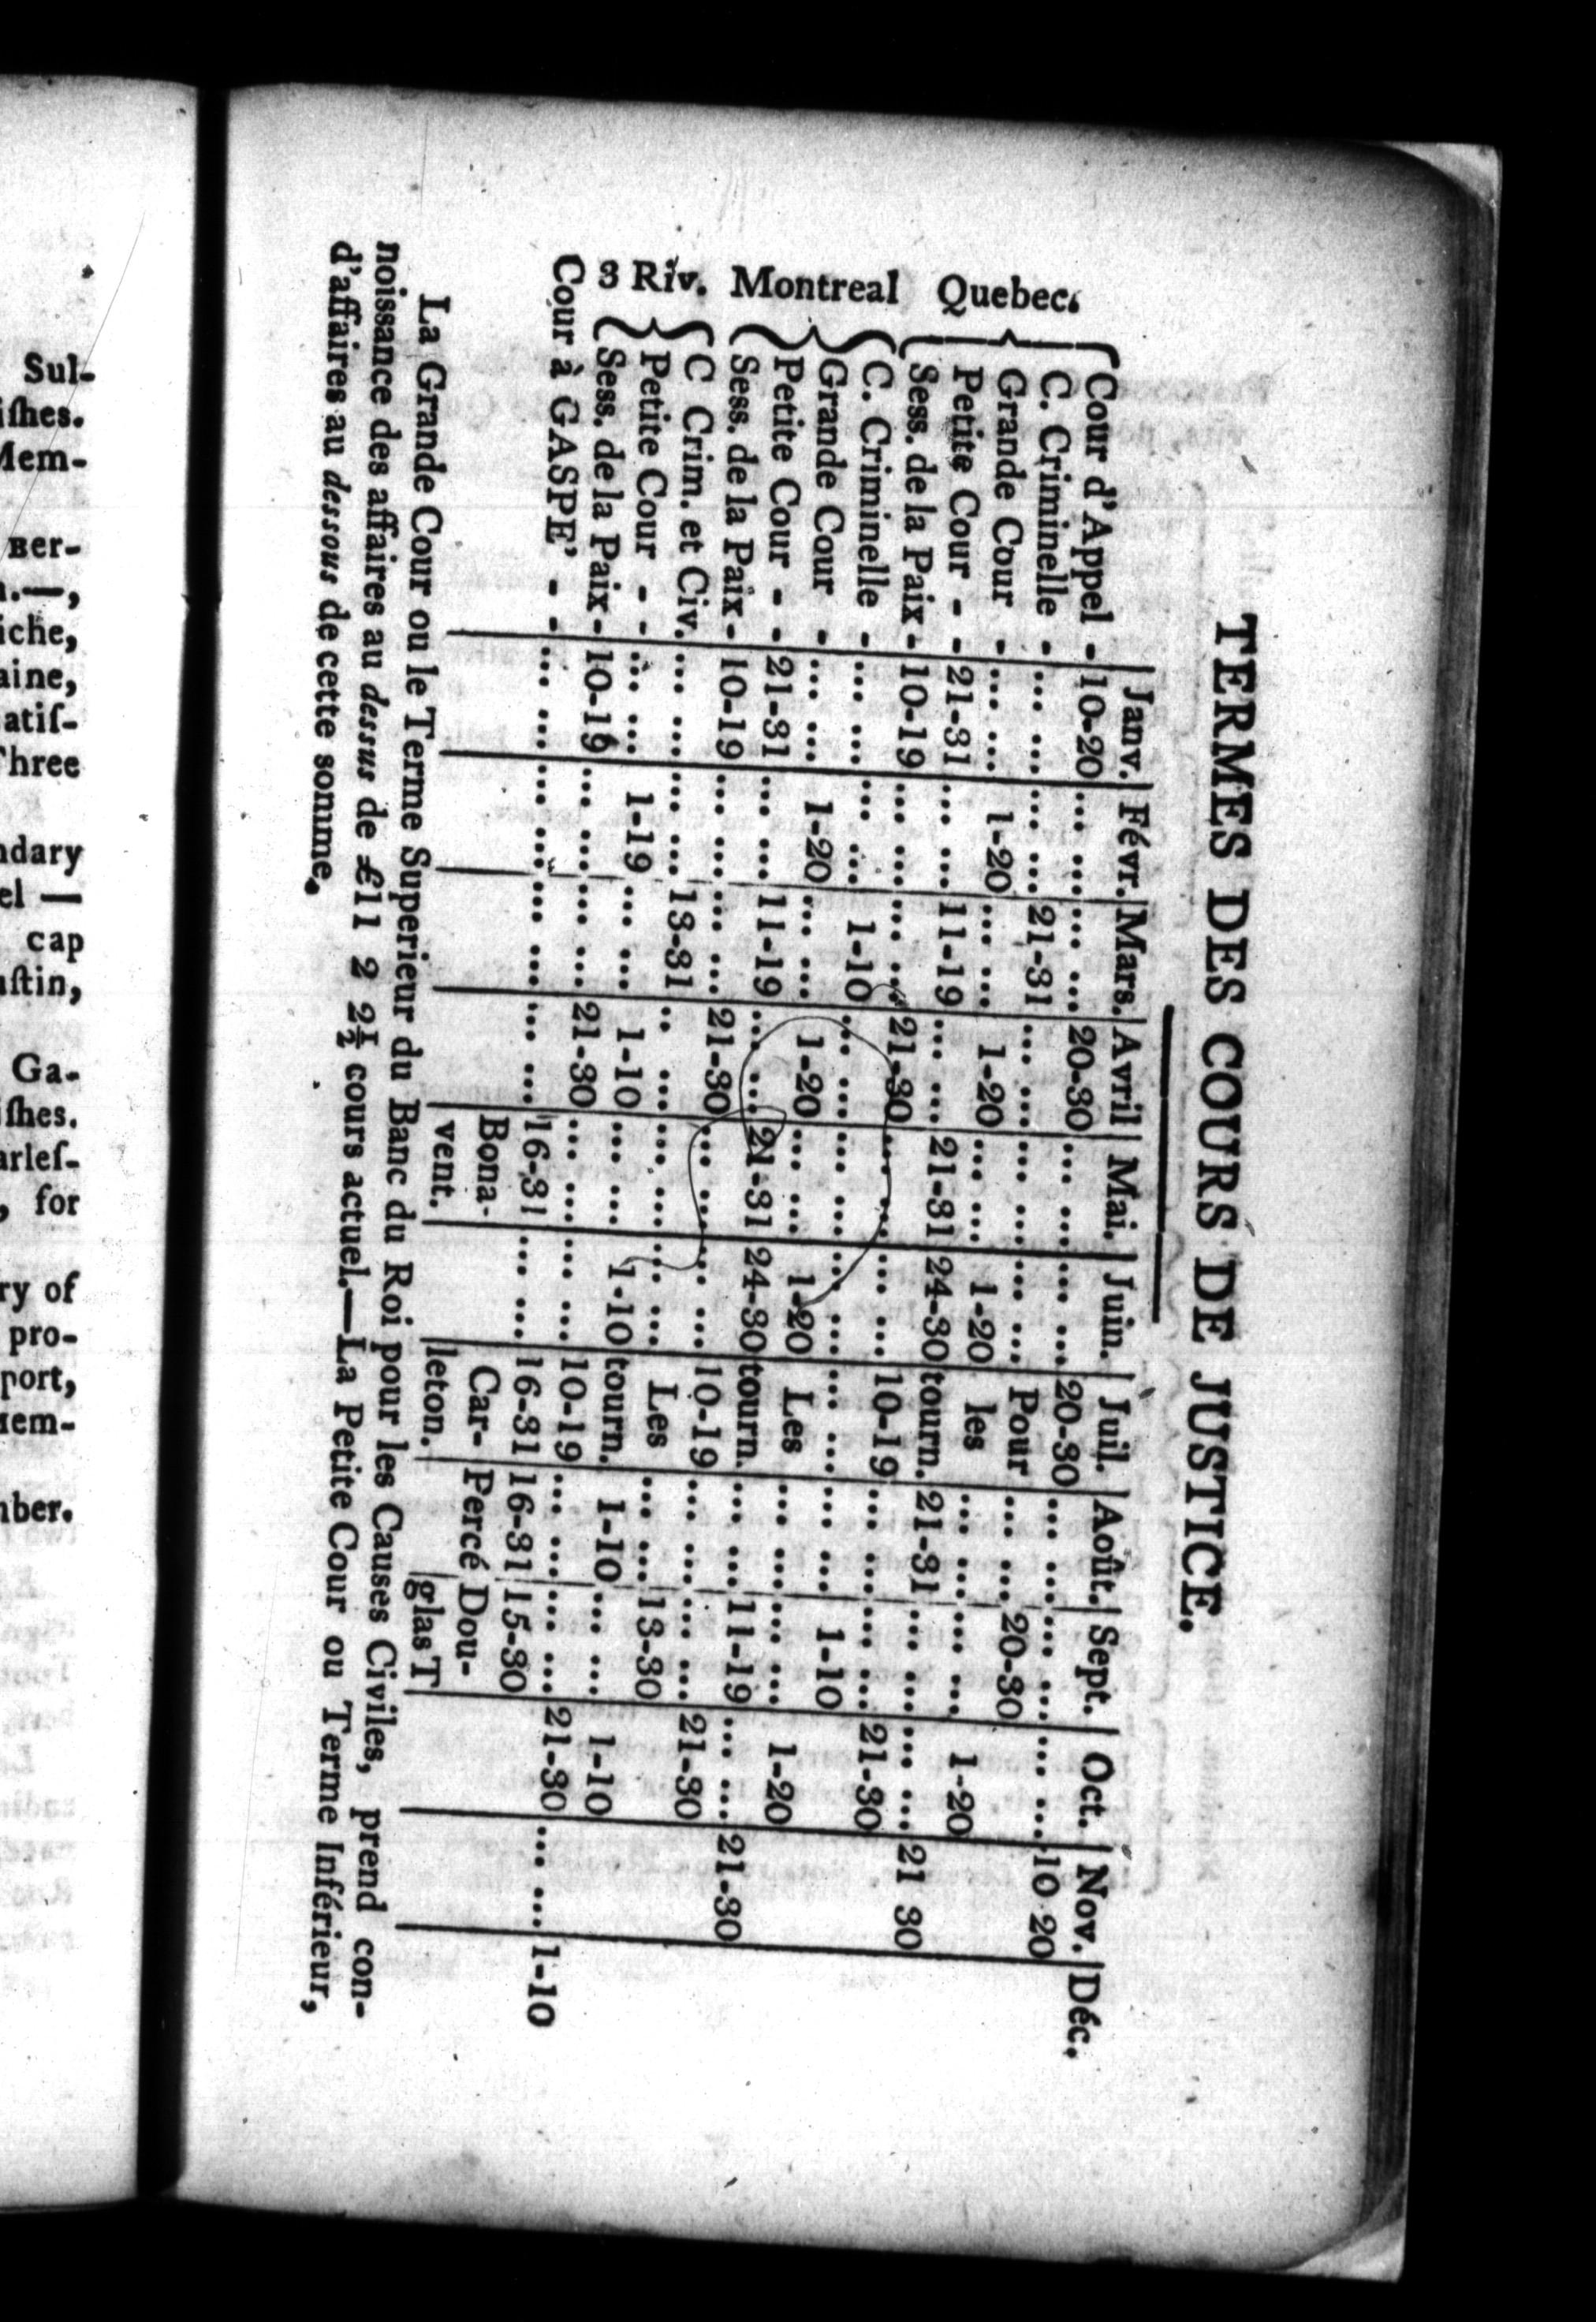 Sul-
iſhes.
Mem-
Ber-
.—,
iche,
aine,
atiſ-
Three
ndary
el —
cap
uſtin,
Ga-
iſhes.
arleſ-
, for
ry of
pro-
port,
nber.
TERMES DES COURS DE JUSTICE.
| Janv. | Févr. | Mars. | Avril | Mai. | Juin. | Juil. | Août. | Sept. | Oct. | Nov. | Déc.
Quebec.
Cour d'Appel - 10-20 ... ... ... ... 20-30 ... ... ... ... 20-30 ... ... ... ... ... ... 10 20
C. Criminelle - ... ... ... ... 21-31 ... ... ... ... ... ... Pour ... ... 20-30
Grande Cour - ... ... 1-20 ... ... 1-20 ... ... 1-20 les ... ... ... ... 1-20
Petite Cour - - 21-31 ... ... 11-19 ... ... 21-31 24-30 tourn. 21-31 ... ... ... ... 21 30
Sess. de la Paix - 10-19 ... ... ... ... 21-30 ... ... ... ... 10-19 ... ... ... ... 21-30
Montreal
C. Criminelle - ... ... ... ... 1-10 ... ... ... ... ... ... ... ... ... ... 1-10
Grande Cour - ... ... 1-20 ... ... 1-20 ... ... 1-20 Les ... ... ... ... 1-20
Petite Cour - - 21-31 ... ... 11-19 ... ... 21-31 24-30 tourn. ... ... 11-19 ... ... 21-30
Sess. de la Paix - 10-19 ... ... ... ... 21-30 ... ... ... ... 10-19 ... ... ... ... 21-30
3 Riv.
C Crim. et Civ. ... ... ... ... 13-31 .. ... ... ... ... ... Les ... ... 13-30
Petite Cour - - ... ... 1-19 ... ... 1-10 ... ... 1-10 tourn. 1-10 ... ... 1-10
Sess. de la Paix - 10-19 ... ... ... ... 21-30 ... ... ... ... 10-19 ... ... ... ... 21-30
Cour à GASPE' - - ... ... ... ... ... ... ... ... 16-31 ... ... 16-31 16-31 15-30 ... ... 1-10
Bona- Car- Percé Dou-
vent. leton. glas T
La Grande Cour ou le Terme Superieur du Banc du Roi pour les Causes Civiles, prend con-
noissance des affaires au dessus de £11 2 2½ cours actuel.—La Petite Cour ou Terme Inférieur,
d'affaires au dessous de cette somme.